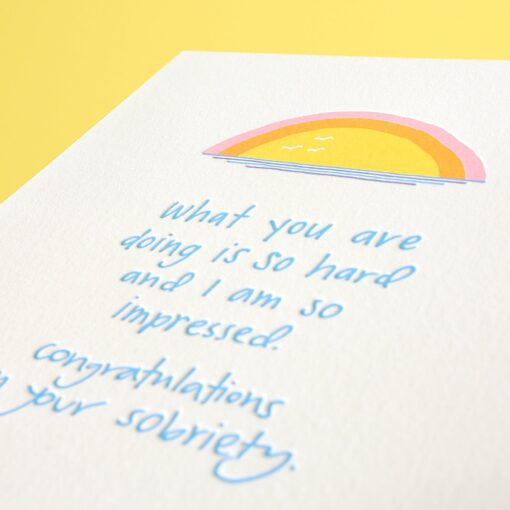 What you are
doing is so hard
and I am so
impressed.
congratulations
on your sobriety.